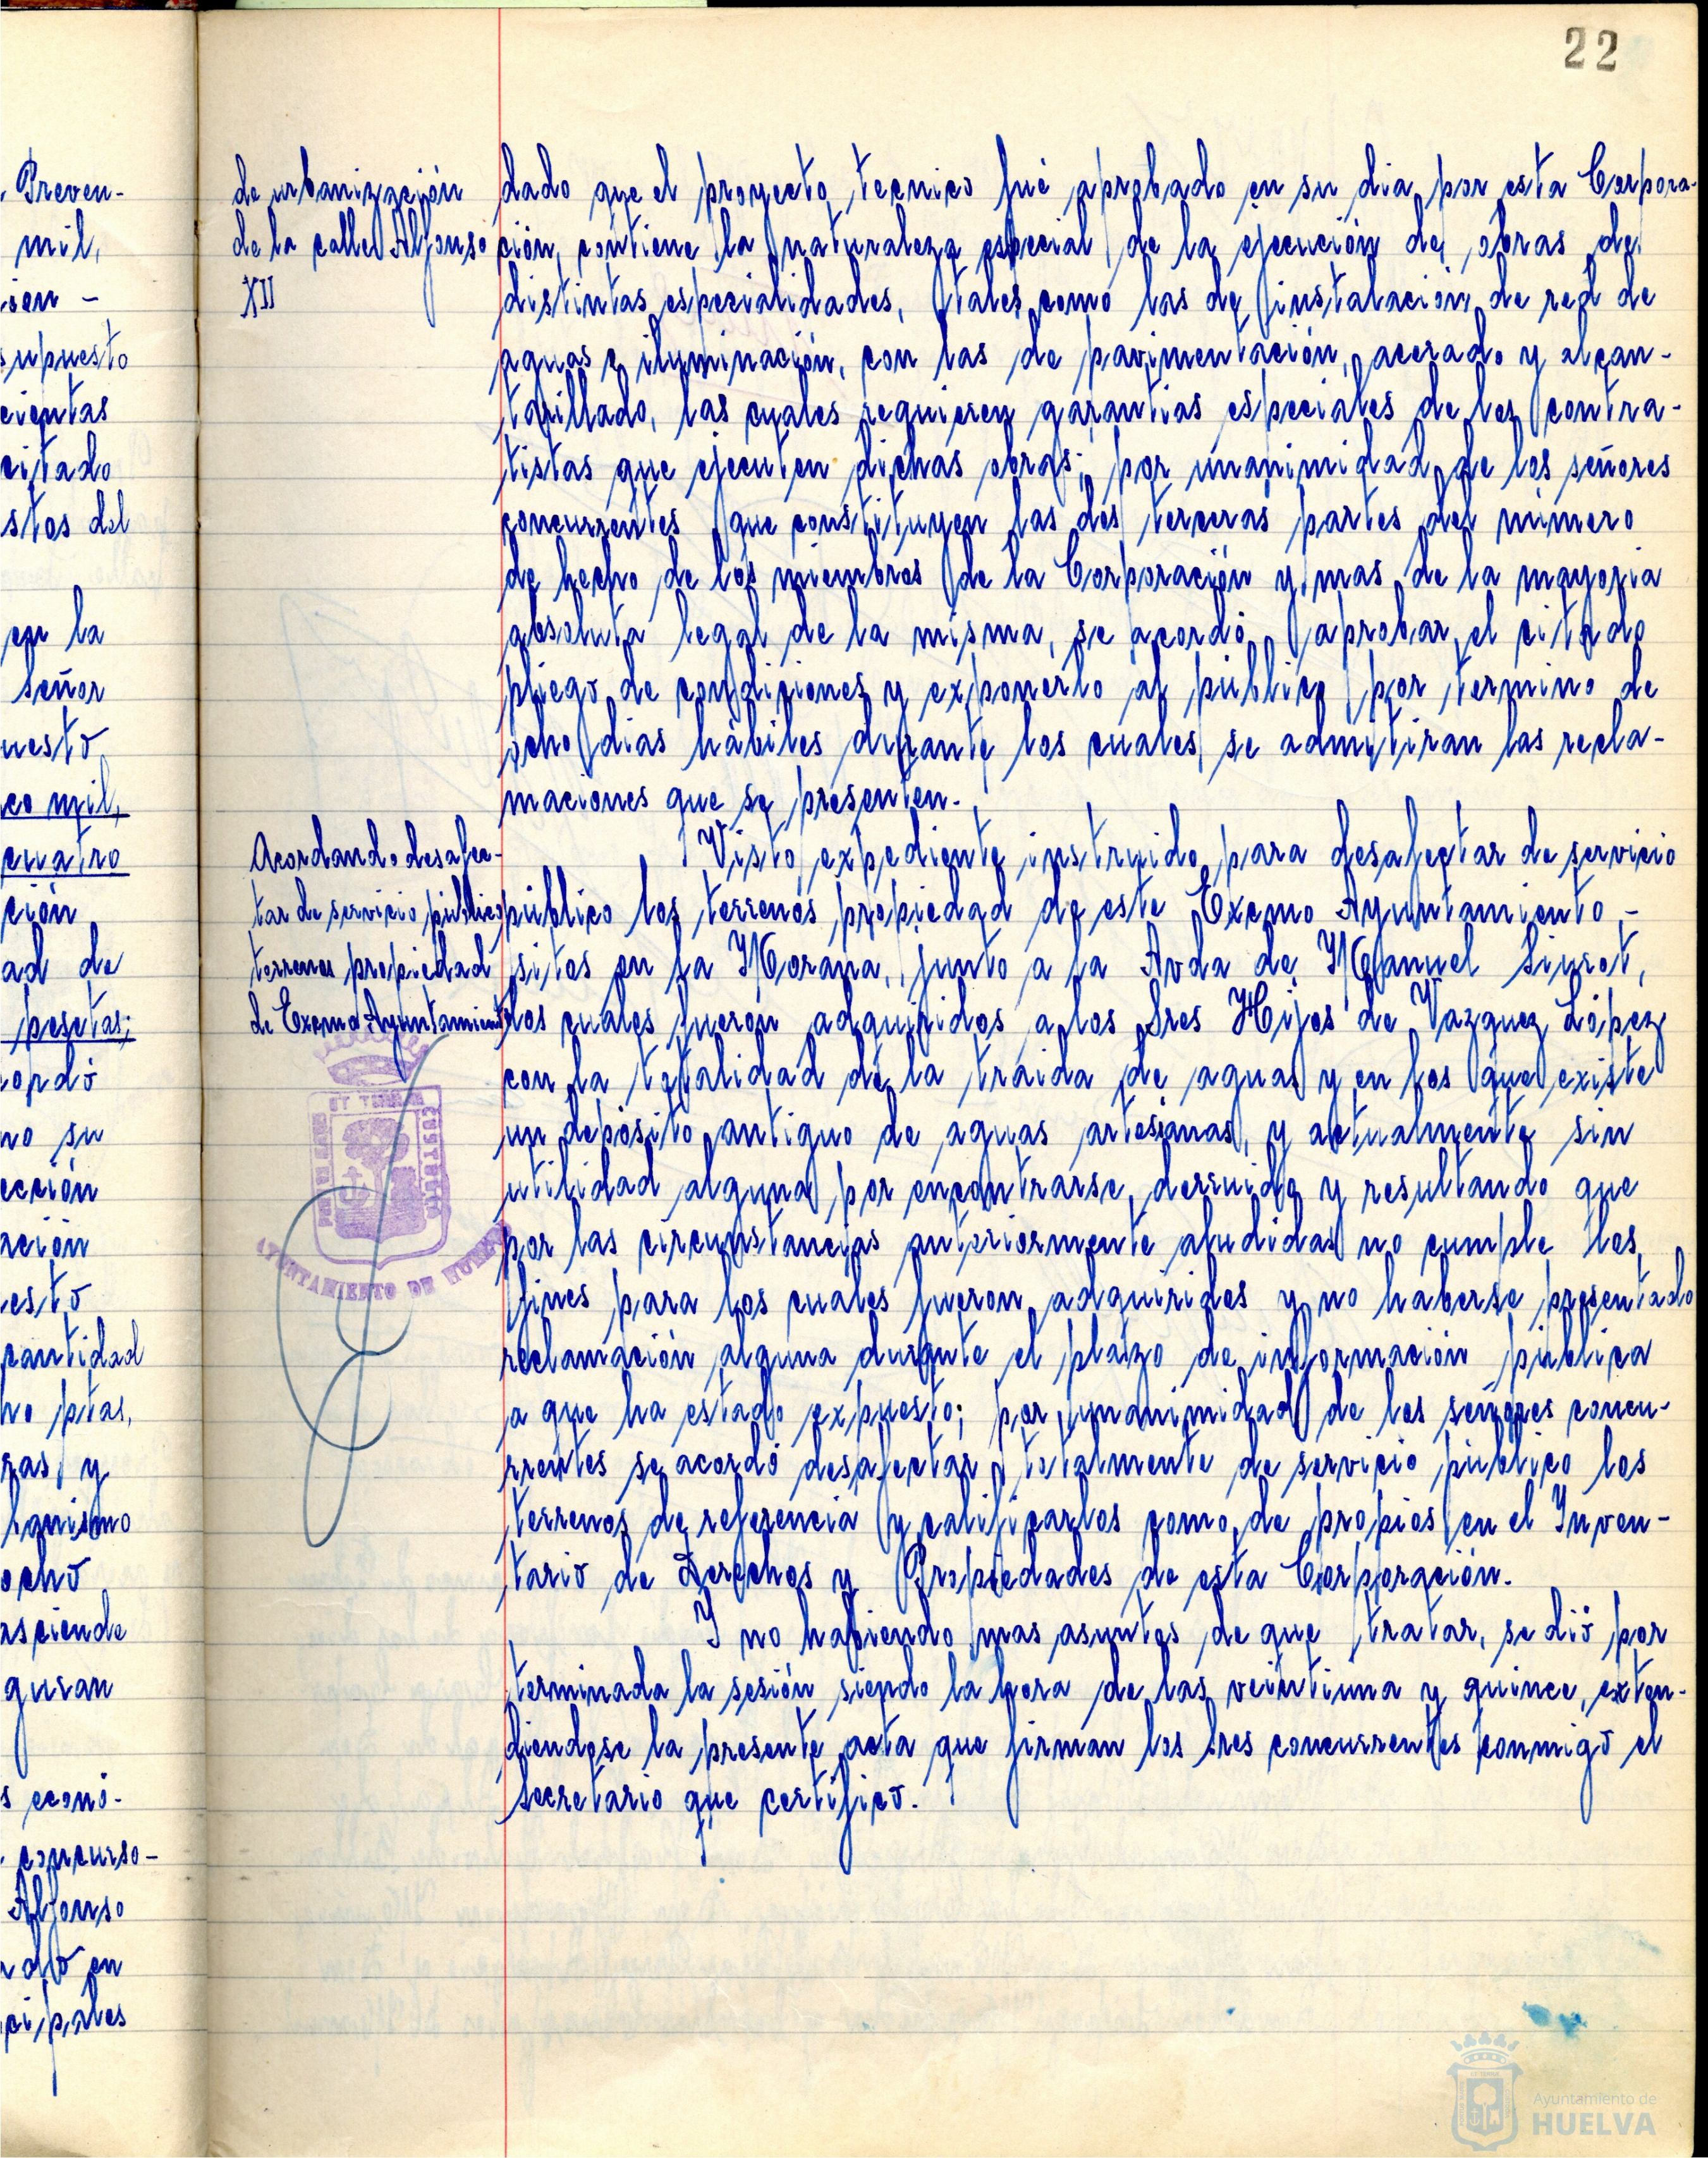 22
Preven-
mil,
supuesto
citado
en la
señor
co mil,
cuatro
ción
ad de
pesetas;
no su
ección
cantidad
ptas,
y
ocho
asciende
guran
s econó-
concurso-
Alfonso
en
de urbanización
de la calle Alfonso
XII
dado que el proyecto tecnico fué aprobado en su dia por esta Corpora-
ción, contiene la naturaleza especial de la ejecución de obras de
distintas especialidades, tales como las de instalación de red de
aguas e iluminación, con las de pavimentación, acerado y alcan-
tarillado, las cuales requieren garantias especiales de los contra-
tistas que ejecuten dichas obras; por unanimidad de los señores
concurrentes que constituyen las dos terceras partes del número
de hecho de los miembros de la Corporación y mas de la mayoria
absoluta legal de la misma, se acordó aprobar el citado
pliego de condiciones y exponerlo al público por termino de
ocho dias hábiles durante los cuales se admitiran las recla-
maciones que se presenten.-
Acordando desafec-
tar de servicio público
terrenos propiedad
de Excmo Ayuntamiento
Visto expediente instruido para desafectar de servicio
público los terrenos propiedad de este Excmo Ayuntamiento,-
sitos en la Morana, junto a la Avda de Manuel Siurot,
los cuales fueron adquiridos a los Sres Hijos de Vazquez López
con la totalidad de la traida de aguas y en los que existe
un depósito antiguo de aguas artesianas, y actualmente sin
utilidad alguna por encontrarse derruido y resultando que
por las circunstancias anteriormente aludidas no cumple los
fines para los cuales fueron adquiridos y no haberse presentado
reclamación alguna durante el plazo de información pública
a que ha estado expuesto; por unanimidad de los señores concu-
rrentes se acordó desafectar totalmente de servicio público los
terrenos de referencia y calificarlos como de propios en el Inven-
tario de Derechos y Propiedades de esta Corporación.
Y no habiendo mas asuntos de que tratar, se dió por
terminada la sesión siendo la hora de las veintiuna y quince, exten-
diendose la presente acta que firman los Sres concurrentes conmigo el
Secretario que certifico.
AYUNTAMIENTO DE HUELVA
Ayuntamiento de
HUELVA